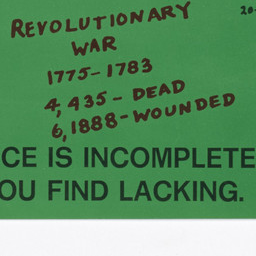 REVOLUTIONARY
20-
WAR
1775-1783
4,435 - DEAD
6,1888 - WOUNDED
CE IS INCOMPLETE
OU FIND LACKING.